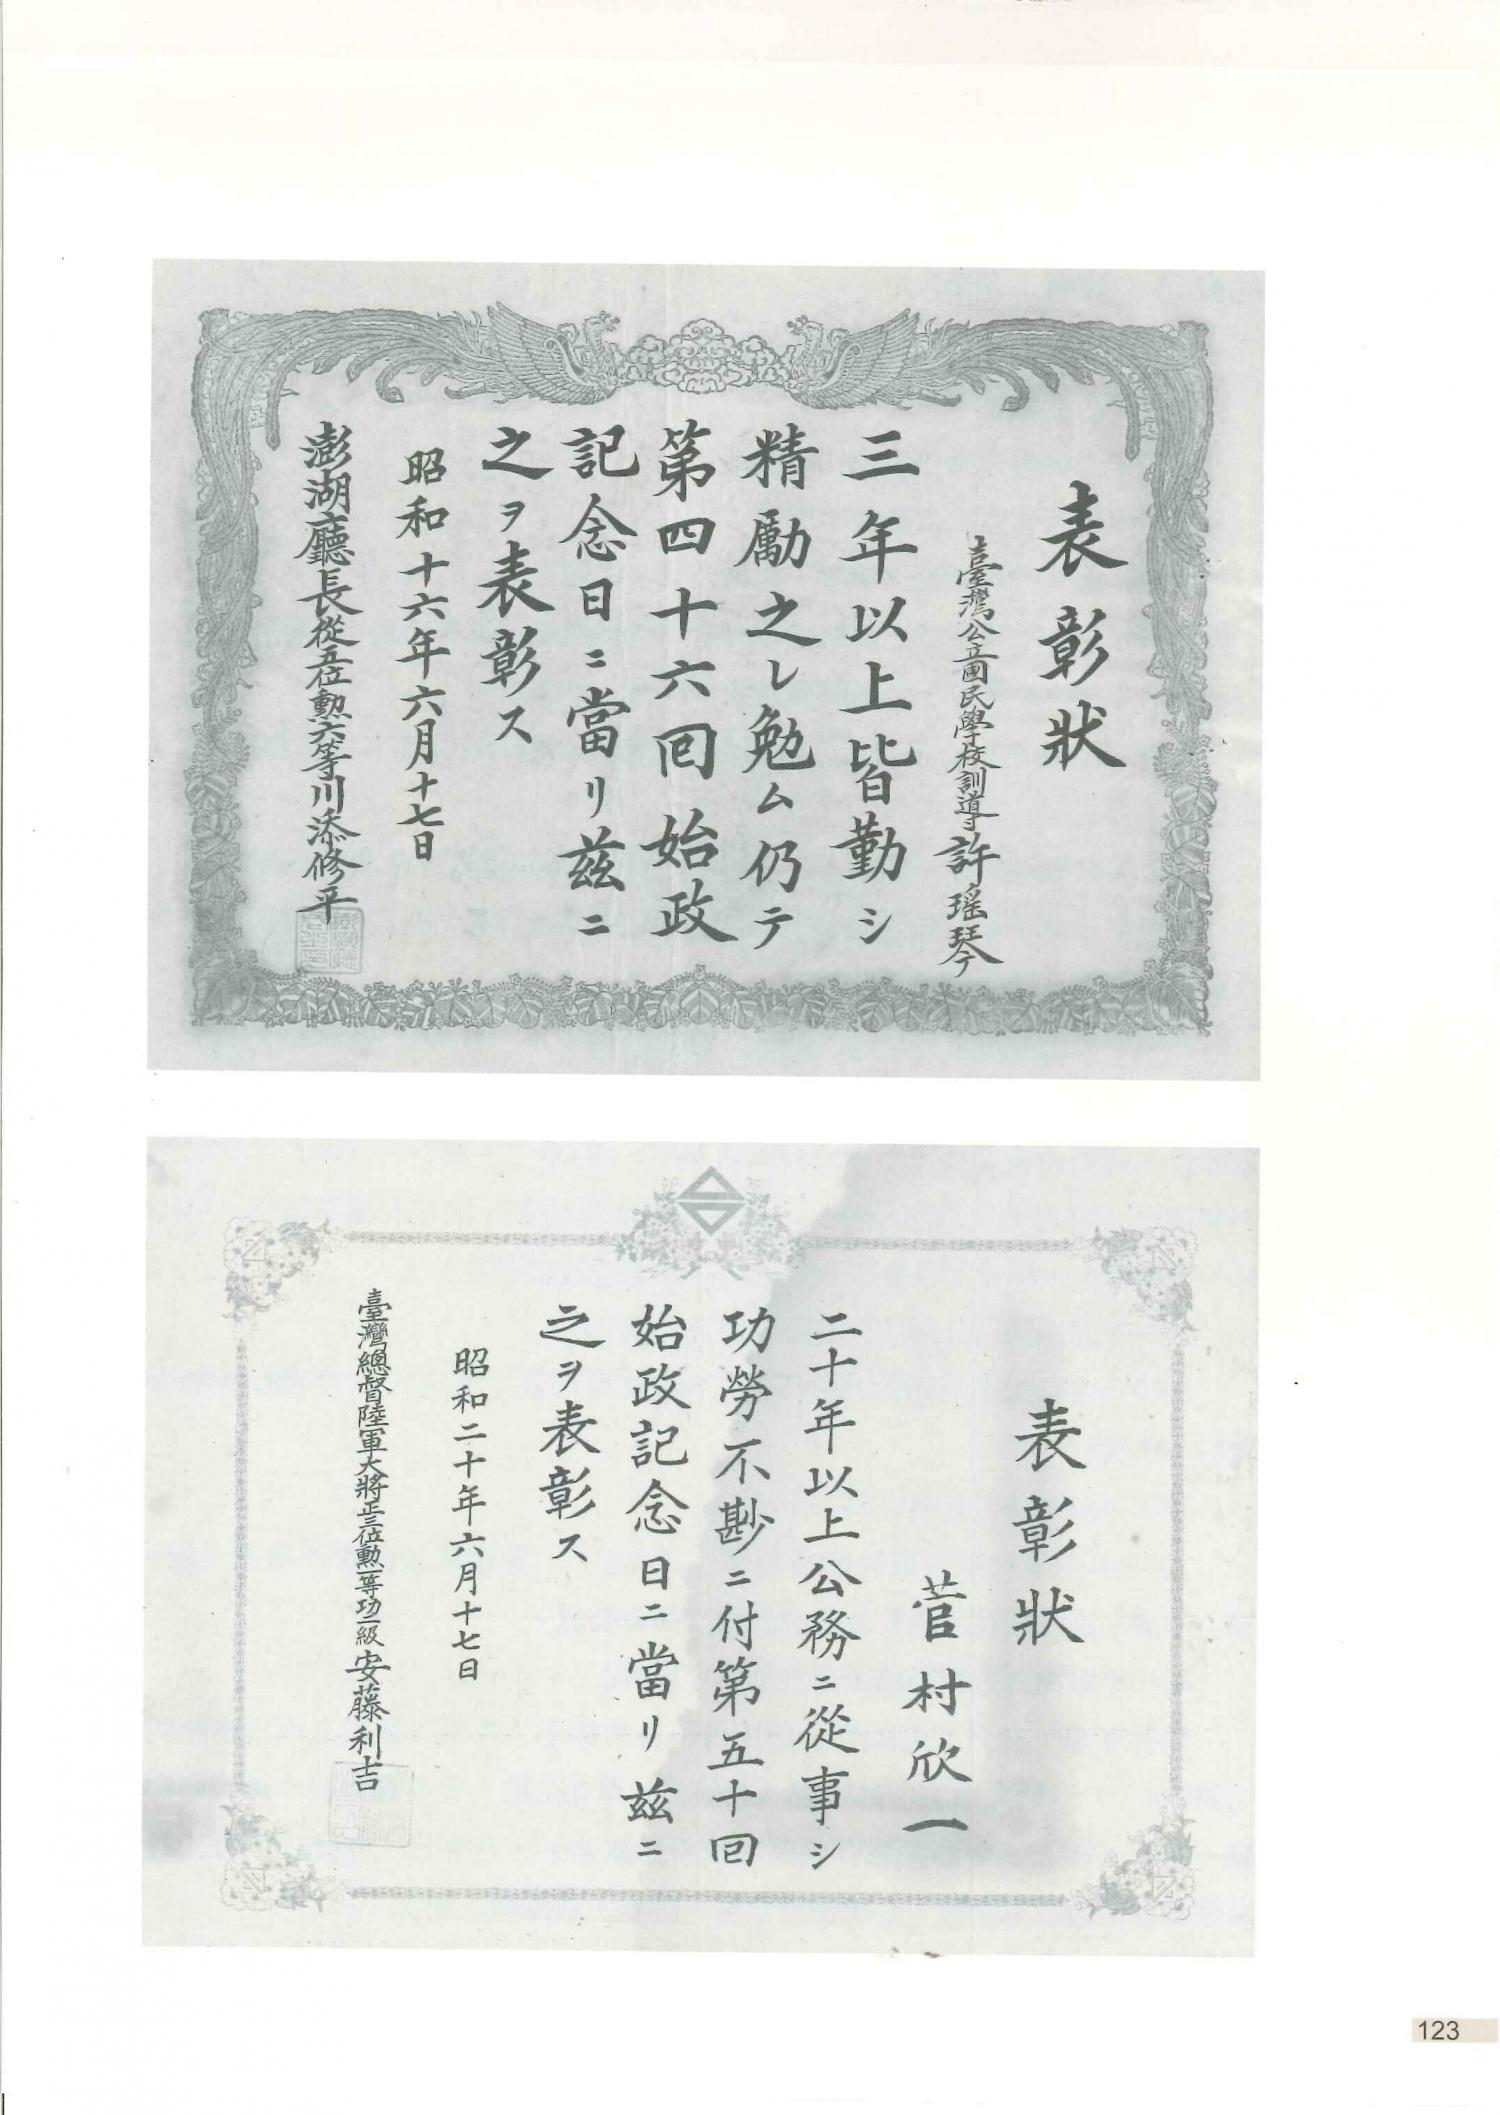 表彰狀
臺灣公立國民學校訓導許瑤琴
三年以上皆勤シ
精勵之レ勉ム仍テ
第四十六回始政
記念日ニ當リ茲ニ
之ヲ表彰ス
昭和十六年六月十七日
澎湖廳長從五位勲六等川添修平
表彰狀
菅村欣一
二十年以上公務ニ從事シ
功勞不尠ニ付第五十回
始政記念日ニ當リ茲ニ
之ヲ表彰ス
昭和二十年六月十七日
臺灣總督陸軍大將正三位勲一等功一級安藤利吉
123